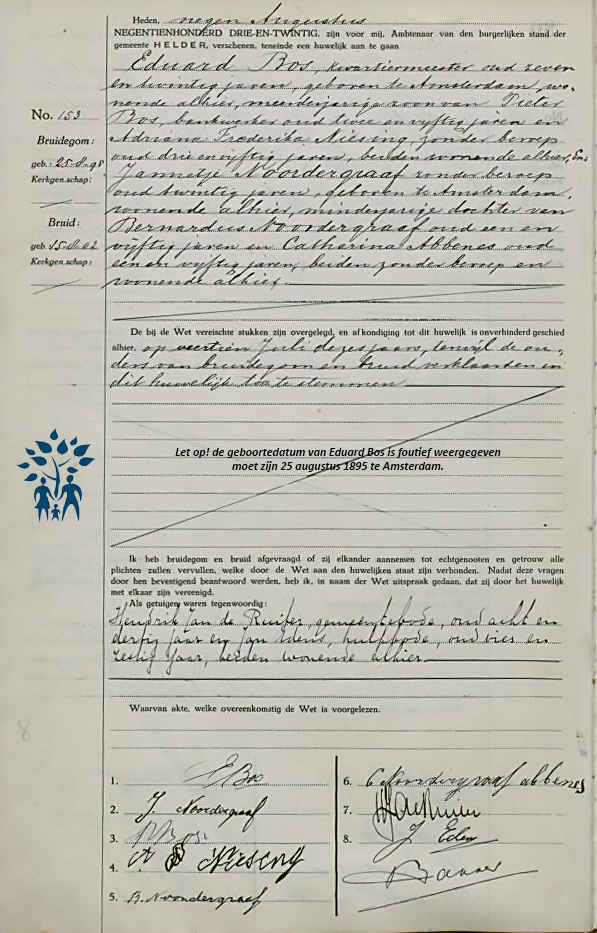 Heden, negen Augustus
NEGENTIENHONDERD DRIE-EN-TWINTIG, zijn voor mij, Ambtenaar van den burgerlijken stand der
gemeente HELDER, verschenen, teneinde een huwelijk aan te gaan
Eduard Bos, kwartiermeester oud zeven
en twintig jaren, geboren te Amsterdam, wo-
nende alhier, meerderjarige zoon van Pieter
No. 153
Bos, bankwerker oud twee en vijftig jaren en
Bruidegom:
Adriana Frederika Niesing, zonder beroep
geb.: 25-8-98
oud drie en vijftig jaren, beiden wonende alhier, En:
Kerkgen.schap:
Jannetje Noordergraaf zonder beroep
oud twintig jaren, geboren te Amsterdam,
wonende alhier, minderjarige dochter van
Bruid:
Bernardus Noordergraaf oud een en
geb
vijftig jaren en Catharina Abbenes oud
Kerkgen.schap:
een en vijftig jaren, beiden zonder beroep en
wonende alhier.
De bij de Wet vereischte stukken zijn overgelegd, en afkondiging tot dit huwelijk is onverhinderd geschied
alhier, op veertien Juli dezes jaars, terwijl de ou-
ders van bruidegom en bruid verklaarden in
dit huwelijk toe te stemmen
Let op! de geboortedatum van Eduard Bos is foutief weergegeven
moet zijn 25 augustus 1895 te Amsterdam.
Ik heb bruidegom en bruid afgevraagd of zij elkander aannemen tot echtgenooten en getrouw alle
plichten zullen vervullen, welke door de Wet aan den huwelijken staat zijn verbonden. Nadat deze vragen
door hen bevestigend beantwoord werden, heb ik, in naam der Wet uitspraak gedaan, dat zij door het huwelijk
met elkaar zijn vereenigd.
Als getuigen waren tegenwoordig:
Hendrik Jan de Ruijter, gemeentebode, oud acht en
dertig jaar en Jan Edens, hulpbode, oud vier en
zestig jaar, beiden wonende alhier
Waarvan akte, welke overeenkomstig de Wet is voorgelezen.
1. E Bos
2. J. Noordergraaf
3. P Bos.
4. A F Niesing
5. B. Noordergraaf
6. C Noordergraaf abbenes
7.
8. J Eden